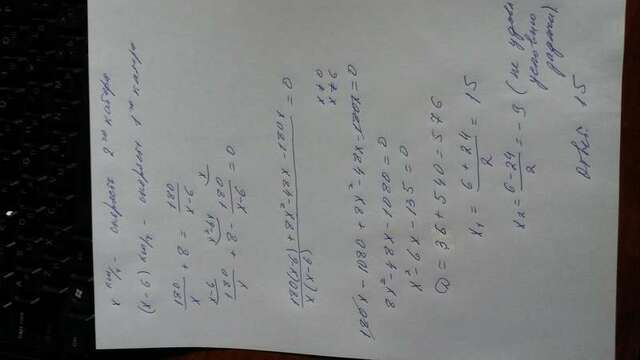 x км/ч - скорость 2го катера
(x-6) км/ч - скорость 1го катера
180/x + 8 = 180/(x-6)
x-6 x²-6x x
180/x + 8 - 180/(x-6) = 0
(180(x-6) + 8x² - 48x - 180x)/(x(x-6)) = 0
x≠0
x≠6
180x - 1080 + 8x² - 48x - 180x = 0
8x² - 48x - 1080 = 0
x² - 6x - 135 = 0
D = 36 + 540 = 576
x₁ = (6+24)/2 = 15
x₂ = (6-24)/2 = -9 (не удов. условию задачи)
Ответ 15